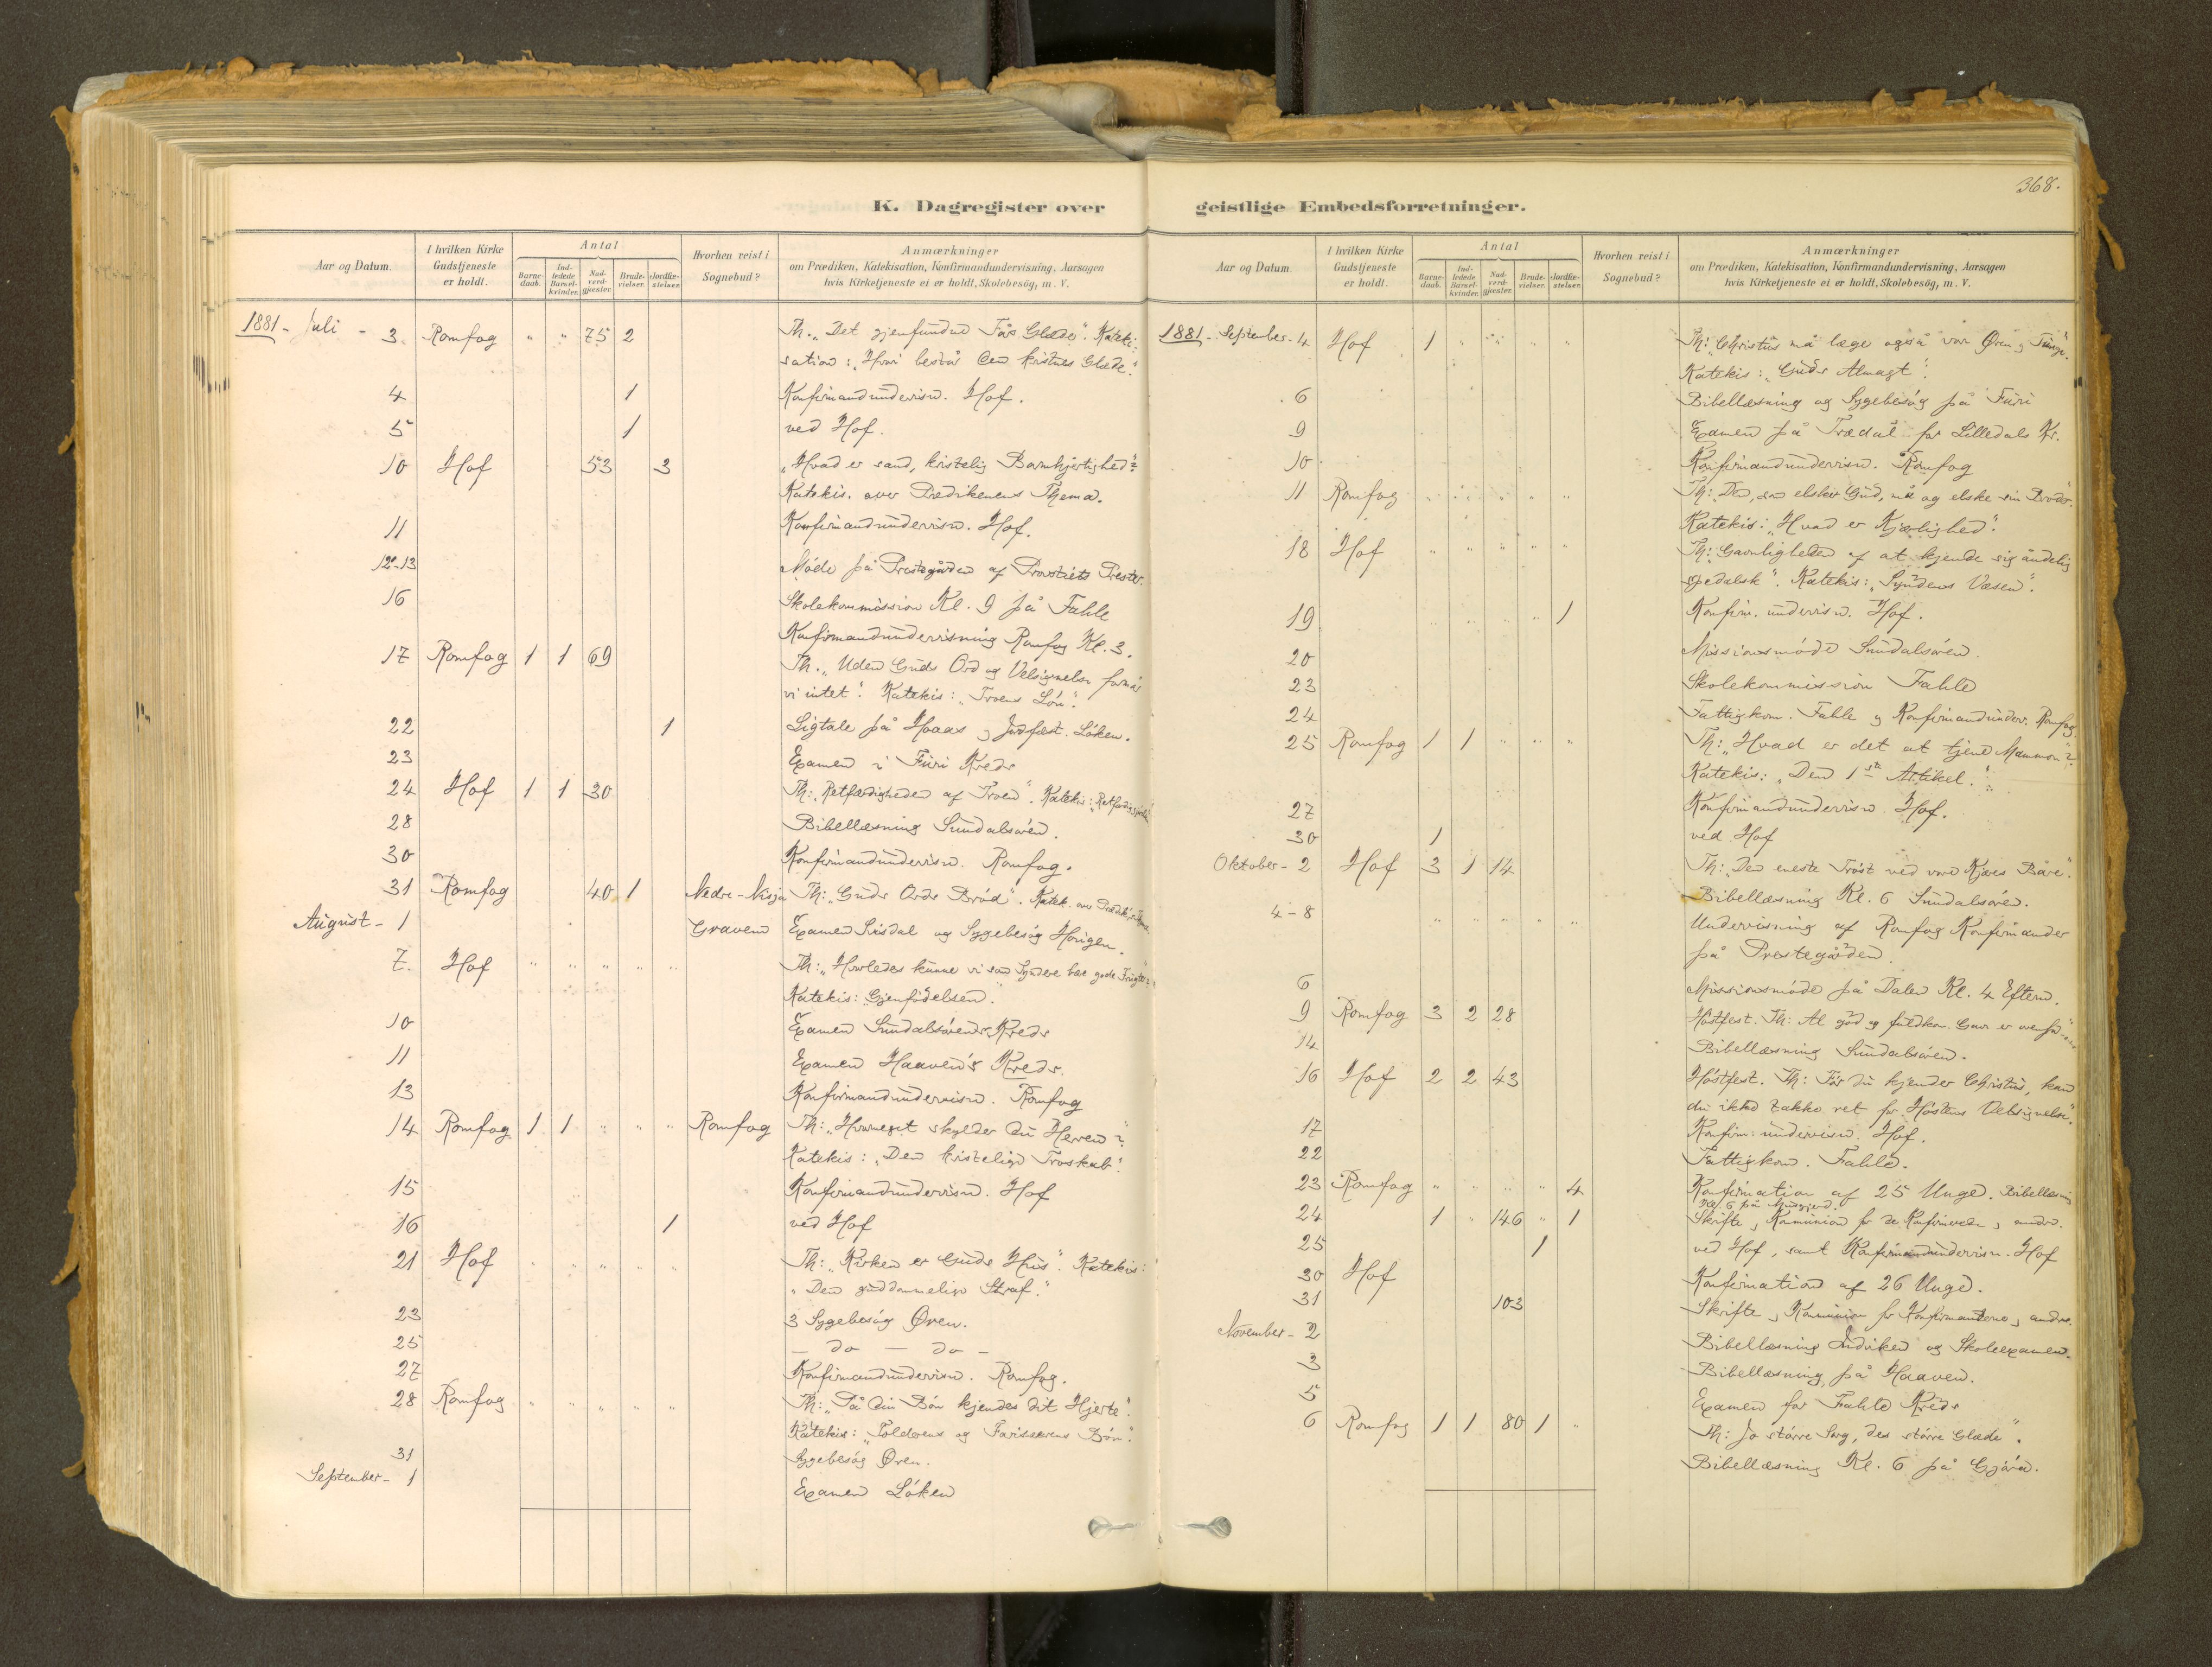 368.
K. Dagregister over
Aar og Datum.
I hvilken Kirke Gudstjeneste er holdt.
Antal
Barne-daab.
Ind-ledede Barsel-kvinder.
Nad-verd-gjæster.
Brude-vielser.
Jordfæ-stelser.
Hvorhen reist i Sognebud?
Anmærkninger
om Prædiken, Katekisation, Konfirmandundervisning, Aarsagen
hvis Kirketjeneste ei er holdt, Skolebesög, m. V.
1881 - Juli - 3 Romfog " " 75 2 Th. „Det gjenfundne Fårs Glæde". Kateki-
sation: „Hvori består den kristnes Glæde."
4 1 Konfirmandundervisn. Hof.
5 1 ved Hof.
10 Hof 53 3 „Hvad er sand, kristelig Barmhjertighed"?
Katekis. over Prædikenens Thema.
11 Konfirmandundervisn. Hof.
12-13 Møde på Prestegården af Provstiets Prester.
16 Skolekommission Kl. 9 på Fahle
Konfirmandundervisning Romfog Kl. 3.
17 Romfog 1 1 69 Th. „Uden Guds Ord og Velsignelse formår
vi intet". Katekis: „Troens Lön".
22 1 Ligtale på Hoaas og Jordfæst. Löken.
23 Examen i Furi Kreds
24 Hof 1 1 30 Th: „Retfærdigheden af Troen". Katekis:
28 Bibellæsning Sundalsören.
30 Konfirmandundervisn. Romfog.
31 Romfog 40 1 Nedre-Nisja Th: „Guds Ords Bröd". Katek. over
August - 1 Gravem Examen Lirdal og Sygebesög Horigen.
7. Hof " " " " " Th: „Hvorledes kunne vi som Syndere bære gode Frugter"?
Katekis: „Gjenfödelsen".
10 Examen Sundalsörens Kreds
11 Examen Haaven's Kreds.
13 Konfirmandundervisn. Romfog
14 Romfog 1 1 " " " Romfog Th: „Hvormeget skylder du Herren"?
Katekis: „Den kristelige Troskab".
15 Konfirmandundervisn. Hof
16 1 ved Hof
21 Hof " " " " " Th: „Kirken er Guds Hus". Katekis:
„Den guddommelige Straf."
23 3 Sygebesög Øren.
25 — do — do —
27 Konfirmandundervisn. Romfog.
28 Romfog " " " " " Th: „På din Bön kjendes dit Hjerte".
Katekis: „Tolderens og Farisæerens Bön."
31 Sygebesög Øren.
September - 1 Examen Löken
geistlige Embedsforretninger.
Aar og Datum.
I hvilken Kirke Gudstjeneste er holdt.
Antal
Barne-daab.
Ind-ledede Barsel-kvinder.
Nad-verd-gjæster.
Brude-vielser.
Jordfæ-stelser.
Hvorhen reist i Sognebud?
Anmærkninger
om Prædiken, Katekisation, Konfirmandundervisning, Aarsagen
hvis Kirketjeneste ei er holdt, Skolebesög, m. V.
1881 - September - 4 Hof 1 " " " " Th: „Christus må læge også vor Øren og Tunge".
Katekis: „Guds Almagt".
6 Bibellæsning og Sygebesög på Furi
9 Examen på Trædal for Lilledals Kr.
10 Konfirmandundervisn. Romfog
11 Romfog " " " " " Th: „Den, som elsker Gud, må og elske sin Broder".
Katekis: „Hvad er Kjærlighed".
18 Hof " " " " " Th: Gavnligheden af at kjende sig åndelig
spedalsk". Katekis: „Syndens Væsen".
19 " " " " 1 Konfirm. undervisn. Hof.
20 Missionsmöde Sundalsören.
23 Skolekommission Fahle
24 Fattigkom. Fahle og Konfirmandunderv. Romfog.
25 Romfog 1 1 " " " Th: „Hvad er det at tjene Mammon"?
Katekis: „Den 1ste Artikel."
27 Konfirmandundervisn. Hof.
30 1 ved Hof
Oktober - 2 Hof 3 1 14 Th: „Den eneste Tröst ved vore Kjæres Båre".
Bibellæsning Kl. 6 Sundalsören.
4-8 " " " " " Undervisning af Romfog Konfirmander
på Prestegården.
6 Missionsmöde på Dalen Kl. 4 Efterm.
9 Romfog 3 2 28 Höstfest. Th: Al god og fuldkom. Gave er ovenfra"
14 Bibellæsning Sundalsören.
16 Hof 2 2 43 Höstfest. Th:För du kjender Christus, kan
du ikke takke ret for Höstens Velsignelse".
17 Konfirm. undervisn. Hof.
22 Fattigkom. Fahle.
23 Romfog " " " " 4 Konfirmation af 25 Unge. Bibellæsning
Kl. 6 på
24 1 " 146 " 1 Skrifte og Kommunion for de Konfirmerede og andre.
25 1 ved Hof, samt Konfirmandundervisn. Hof
30 Hof Konfirmation af 26 Unge.
31 103 Skrifte og Kommunion for Konfirmanderne og andre.
November - 2 Bibellæsning Jordviken og Skoleexamen.
3 Bibellæsning på Haaven.
5 Examen for Fahle Kreds
6 Romfog 1 1 80 1 " Th: Jo större Sorg, des större Glæde".
Bibellæsning Kl. 6 på Gjöra.